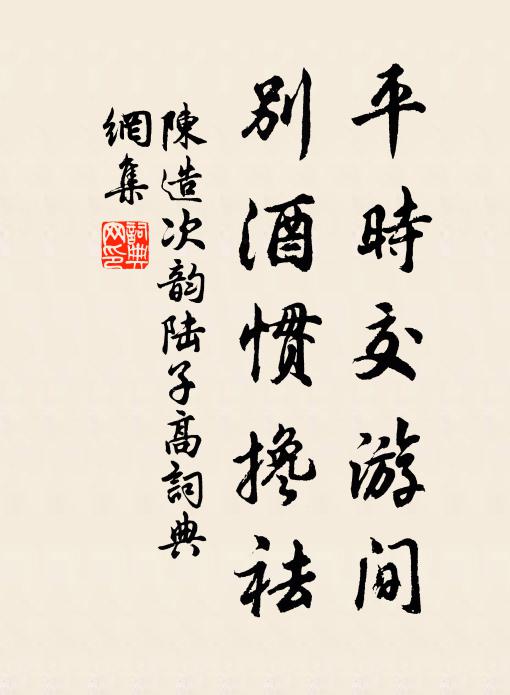 平時交游间
别酒惯搀袪
陳造次韵陆子高詞典
網集
詞典网印